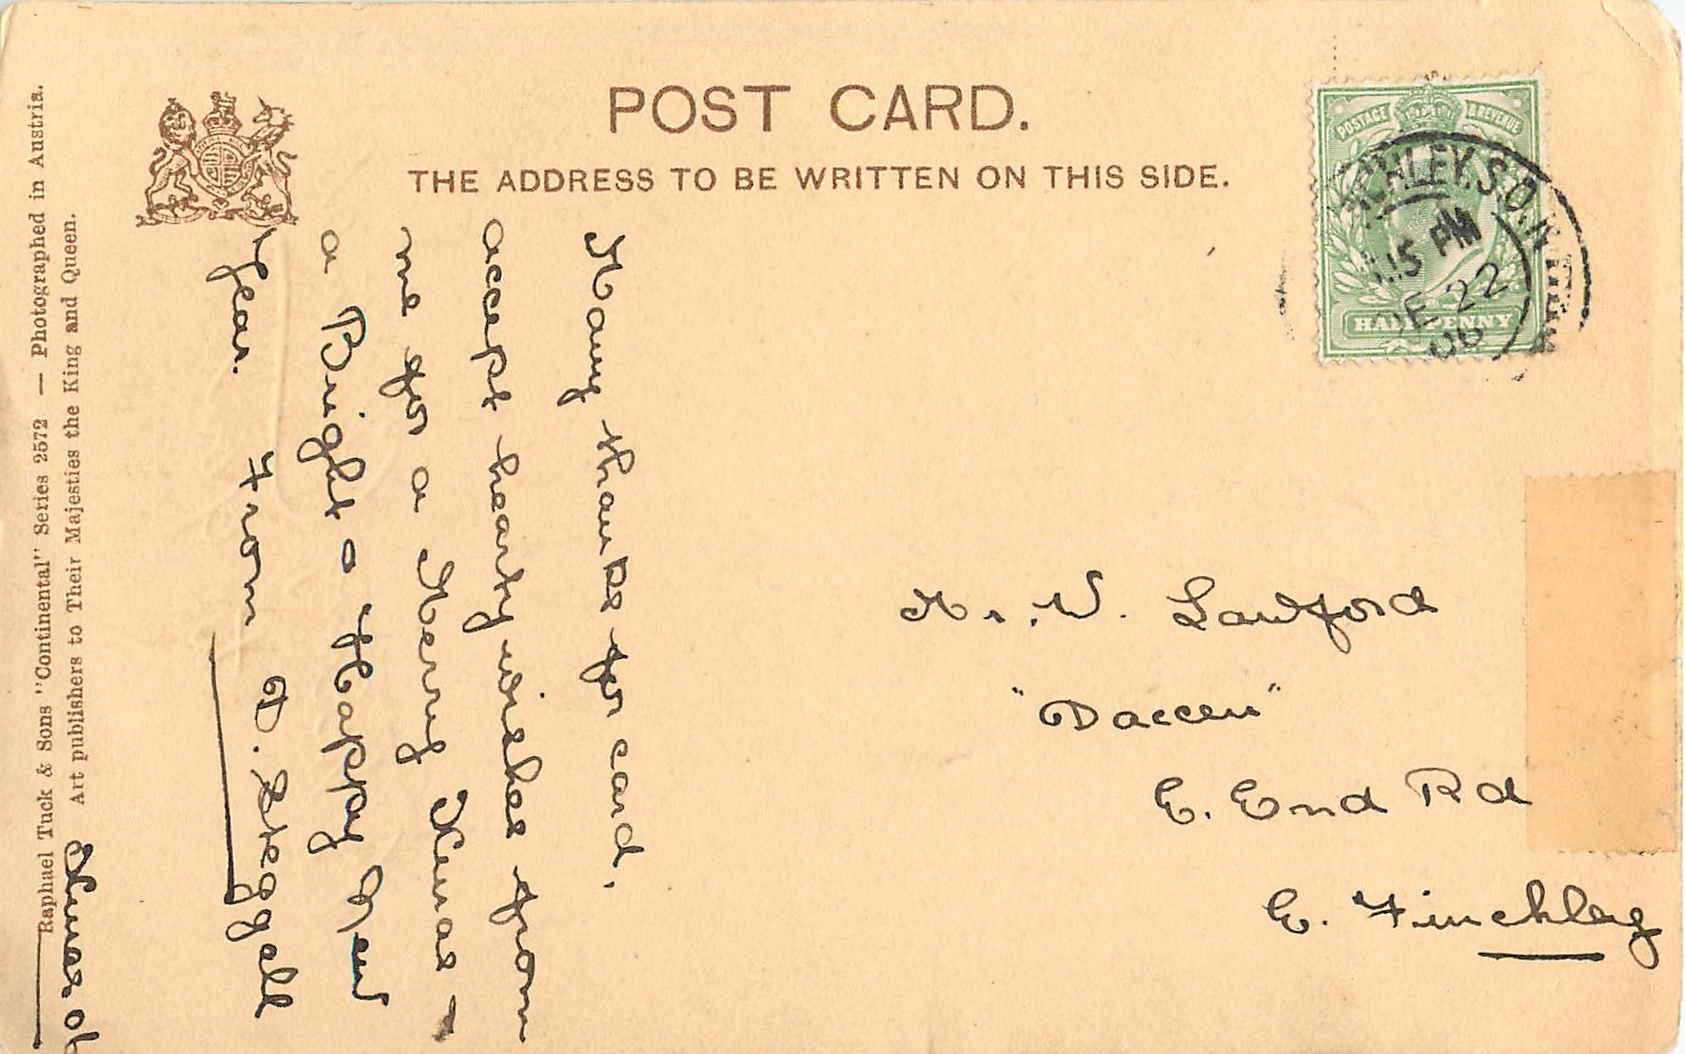 POST CARD.
THE ADDRESS TO BE WRITTEN ON THIS SIDE.
POSTAGE & REVENUE
HALFPENNY
CHLEY. S.O. N
.15 PM
DE 22
06
Raphael Tuck & Sons "Continental" Series 2572 — Photographed in Austria.
Art publishers to Their Majesties the King and Queen.
Many thanks for card.
accept hearty wishes from
me for a Merry Xmas -
a Bright & Happy New
Year. From D. Steggell
Xmas 06
Mr. W. Lawford
E. End Rd
E. Finchley